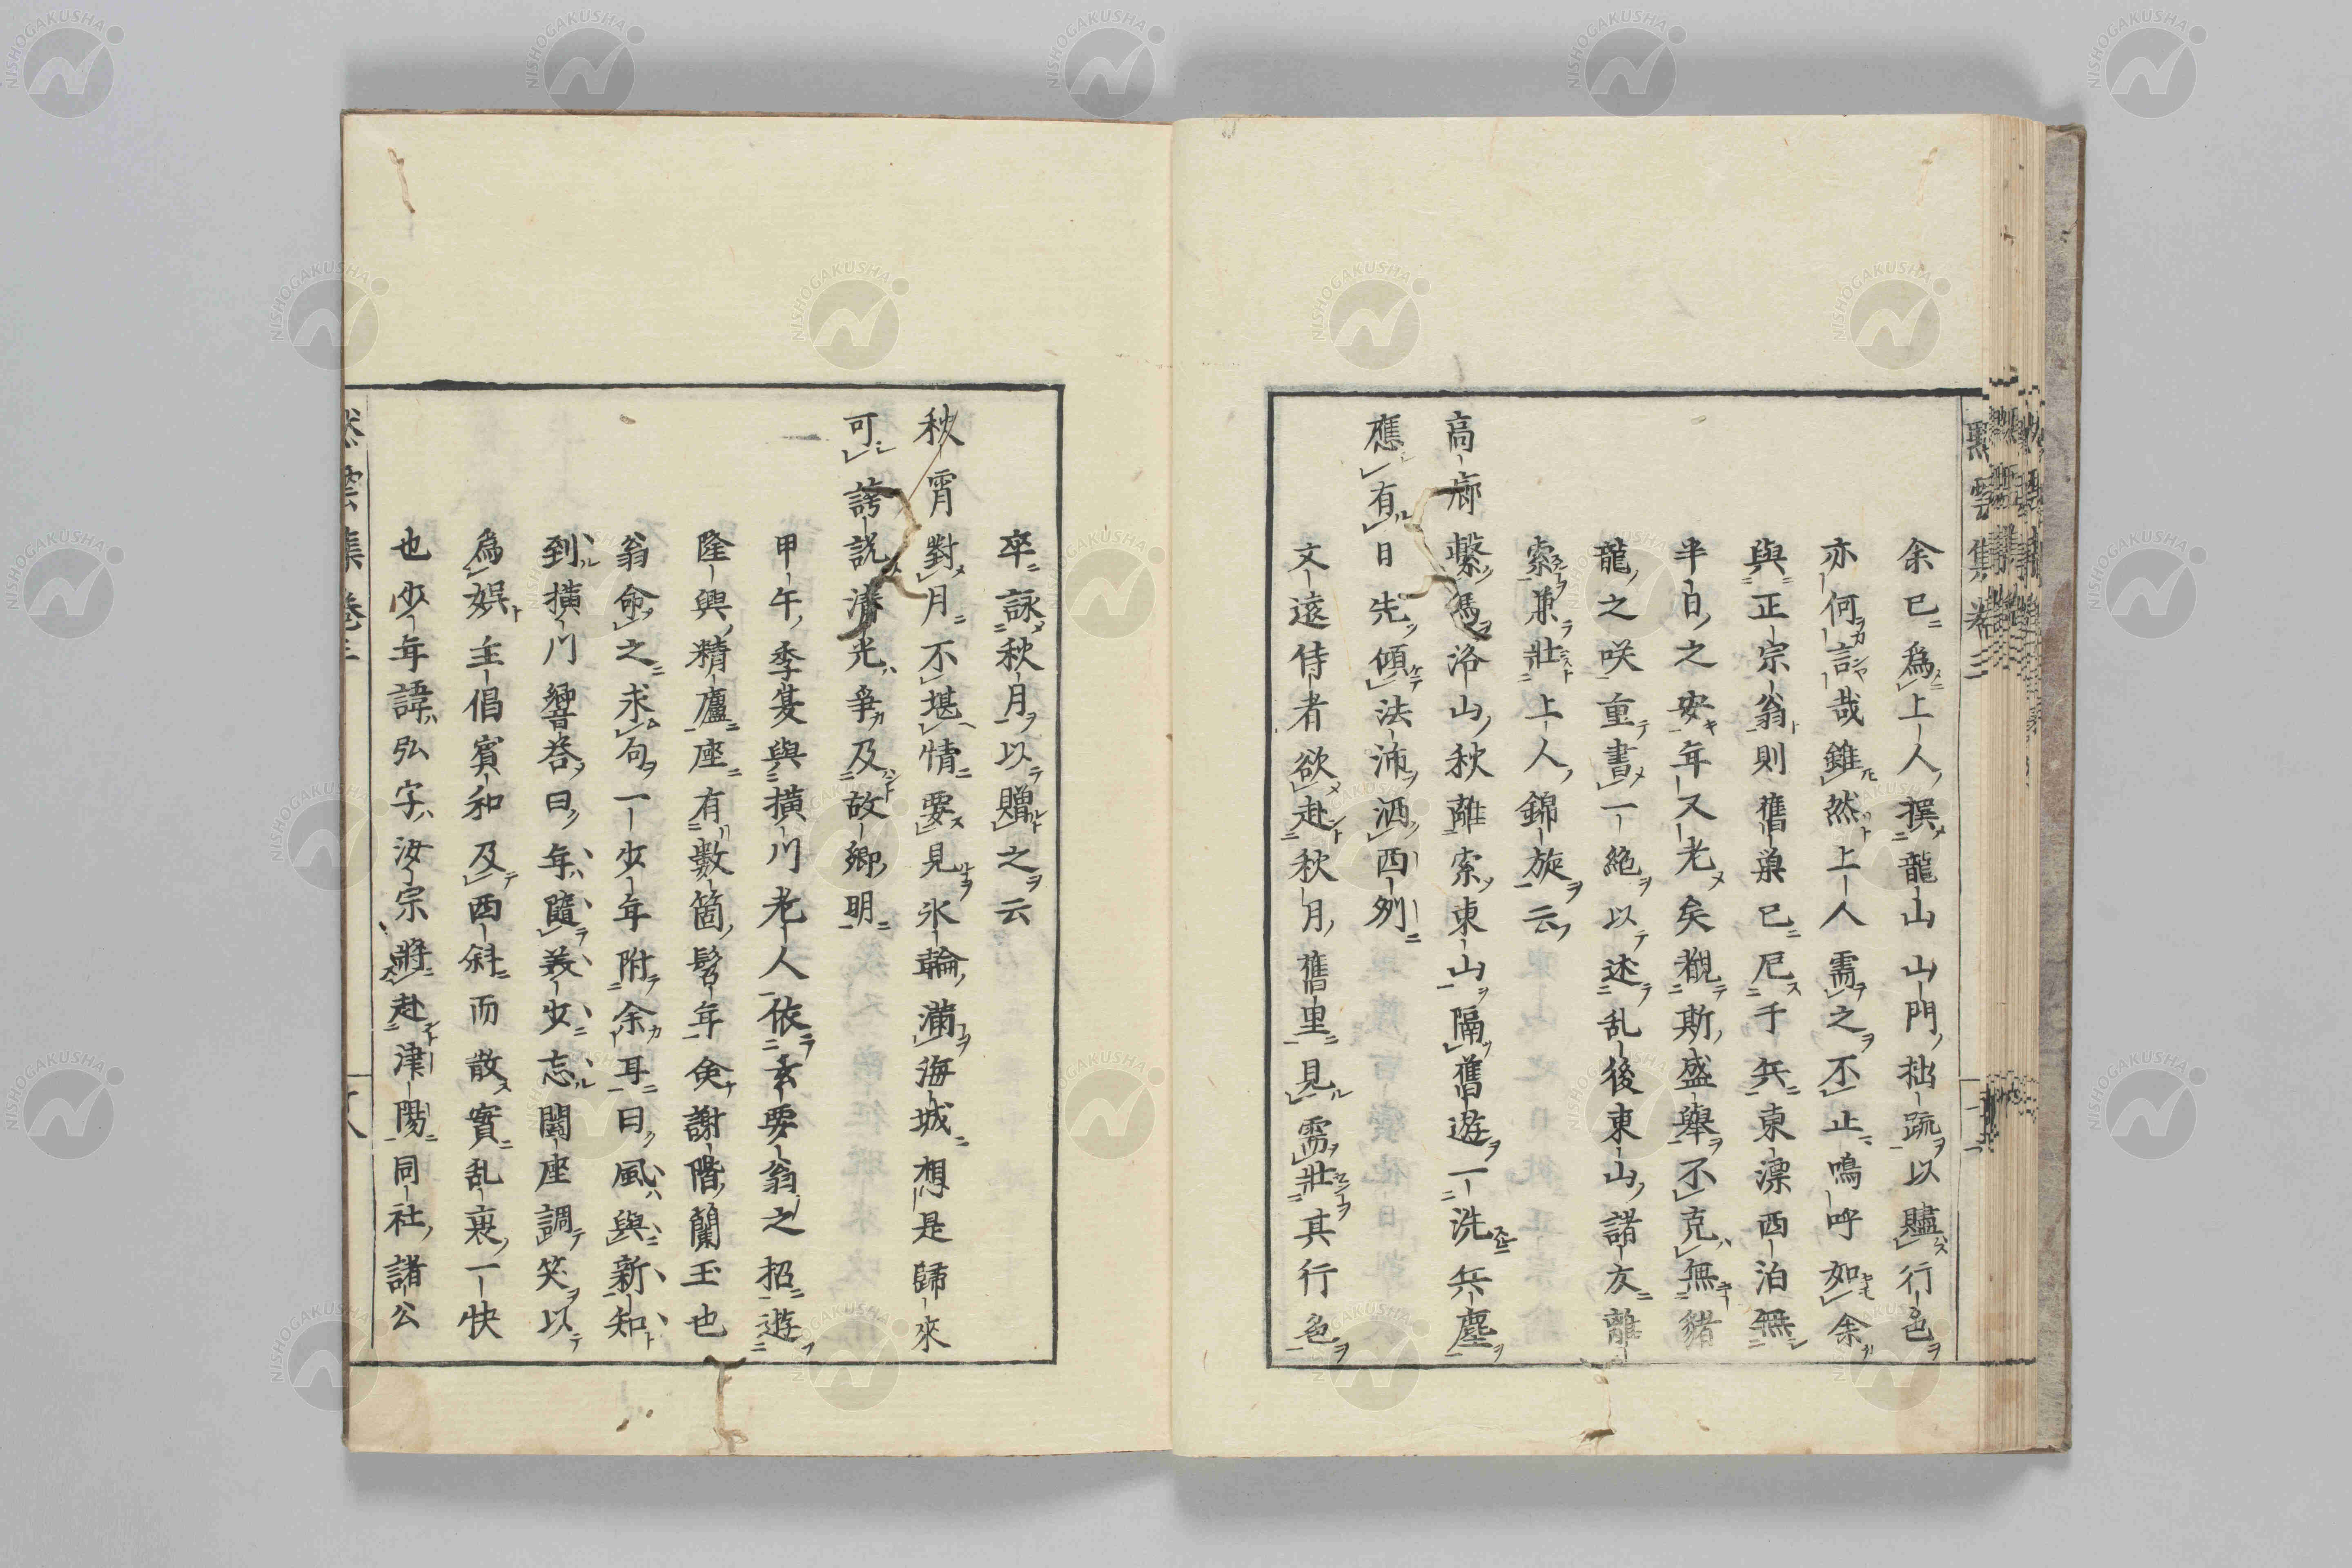 余已爲上人撰龍山山門拙疏以贐行色
亦何言哉雖然上人需之不止鳴呼如余
與正宗翁則舊巢已尼千兵東漂西泊無
半日之安年又老矣觀斯盛擧不克無猪
龍之咲重書一絶以述乱後東山諸友離
索兼壯上人錦旋云
高廊繫馬洛山秋離索東山隔舊遊一洗兵塵
應有日先傾法沛洒西列
文遠侍者欲赴秋月舊里見需壯其行色
卒詠秋月以贈之云
秋霄對月不堪情要見氷輪滿海城想是歸來
可誇説清光爭及故鄉明
甲午季夏與横川老人依玄要翁之招遊
隆興精廬座有數箇髫年奐謝階蘭玉也
翁命之求句一少年附余耳曰風與新知
到横川響答曰年隨義少忘閣座調笑以
爲娯主倡賓和及西斜而散實乱裏一快
也少年諱弘字汝宗將赴津陽同社諸公